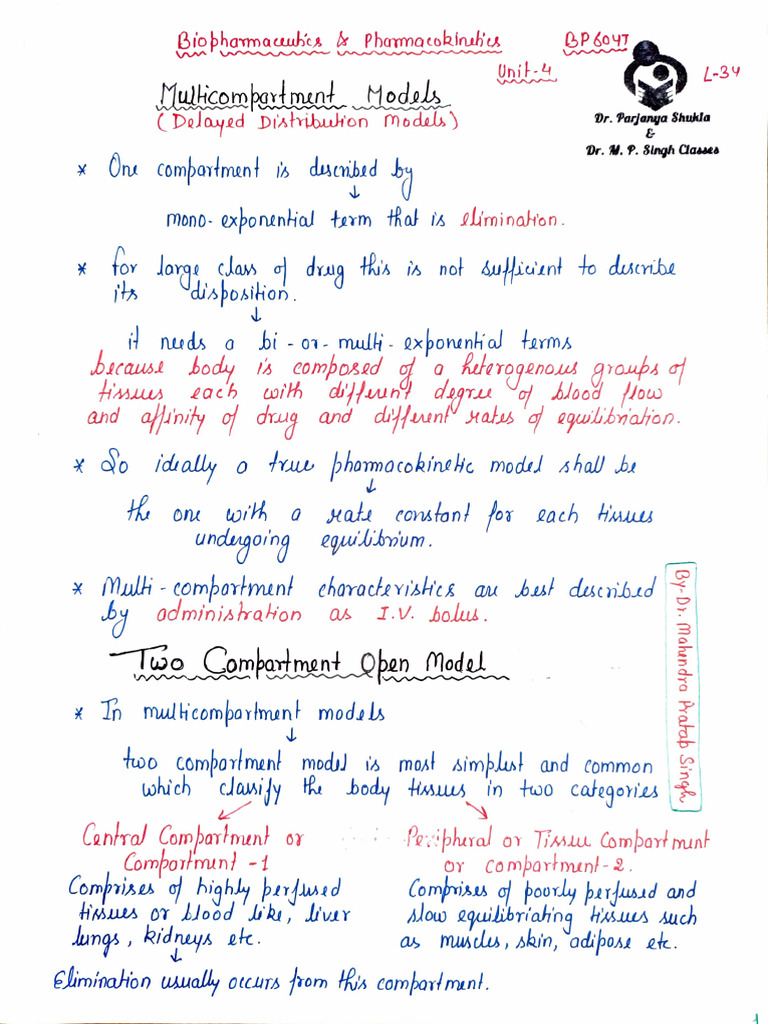 Biopharmaceutics & Pharmacokinetics BP604T
Unit-4 L-34
Dr. Parjanya Shukla
&
Dr. M. P. Singh Classes
Multicompartment Models
(Delayed Distribution Models)
* One compartment is described by
↓
mono-exponential term that is elimination.
* for large class of drug this is not sufficient to describe
its disposition.
↓
it needs a bi-or-multi-exponential terms
because body is composed of a heterogenous groups of
tissues each with different degree of blood flow
and affinity of drug and different rates of equilibriation.
* So ideally a true pharmacokinetic model shall be
↓
the one with a rate constant for each tissues
undergoing equilibrium.
* Multi-compartment characteristics are best described
by administration as I.V. bolus.
By-Dr. Mahendra Pratap Singh
Two Compartment Open Model
* In multicompartment models
↓
two compartment model is most simplest and common
which classify the body tissues in two categories
Central Compartment or
Compartment-1
Comprises of highly perfused
tissues or blood like, liver
lungs, kidneys etc.
↓
Elimination usually occurs from this compartment.
Peripheral or Tissue Compartment
or compartment-2.
Comprises of poorly perfused and
slow equilibriating tissues such
as muscles, skin, adipose etc.
1